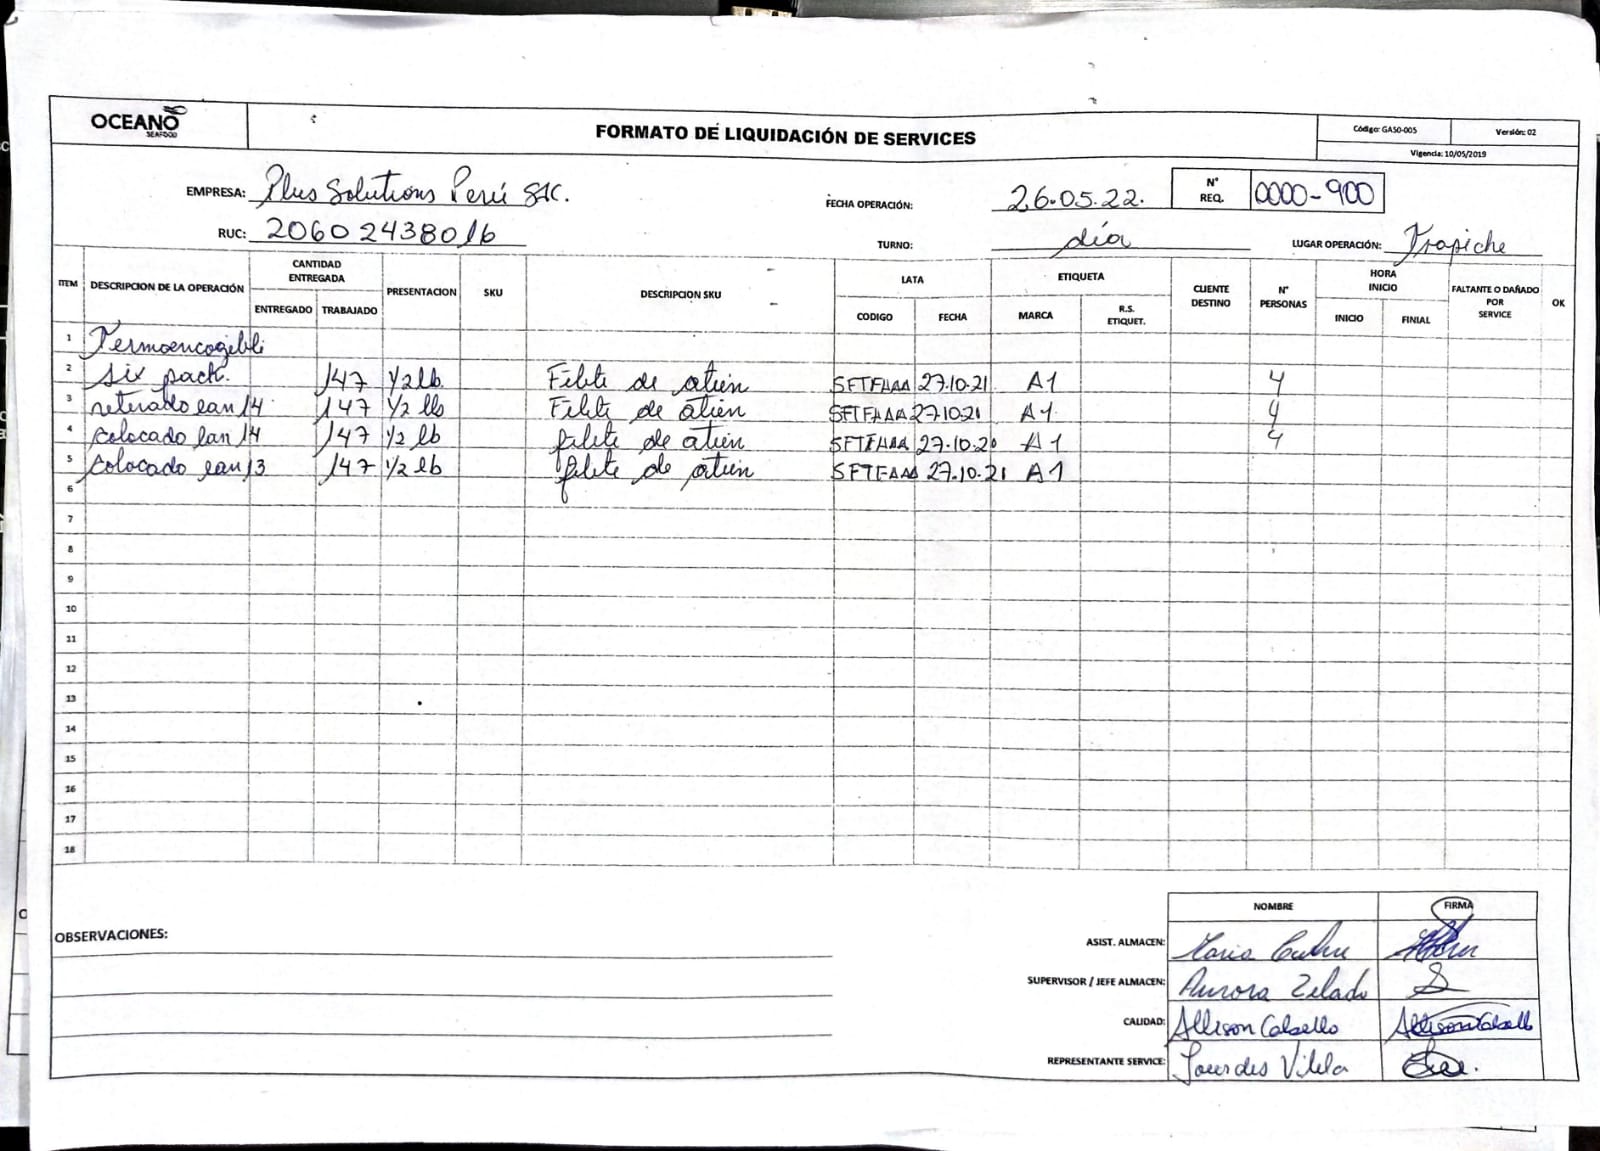 OCEANO
SEAFOOD
FORMATO DE LIQUIDACIÓN DE SERVICES
Código: GASO-005
Versión: 02
Vigencia: 10/05/2019
EMPRESA: Plus Solutions Perú SAC.
FECHA OPERACIÓN: 26.05.22.
N° REQ. 0000-900
RUC: 20602438016
TURNO: día
LUGAR OPERACIÓN: Trapiche
ITEM DESCRIPCION DE LA OPERACIÓN CANTIDAD ENTREGADA PRESENTACION SKU DESCRIPCION SKU LATA ETIQUETA CLIENTE DESTINO N° PERSONAS HORA INICIO FALTANTE O DAÑADO POR SERVICE OK
ENTREGADO TRABAJADO CODIGO FECHA MARCA R.S. ETIQUET. INICIO FINIAL
1 Termoencogibli
2 six pack. 147 1/2 lb Filete de atún 27.10.21 A1 4
3 retirado ean 14 147 1/2 lb Filete de atún 27.10.21 A1 4
4 colocado ean 14 147 1/2 lb filete de atún A1 4
5 colocado ean 13 147 1/2 lb filete de atún 27.10.21 A1
6
7
8
9
10
11
12
13
14
15
16
17
18
OBSERVACIONES:
NOMBRE FIRMA
ASIST. ALMACEN: Maria
SUPERVISOR / JEFE ALMACEN: Aurora Zelada
CALIDAD: Allison
REPRESENTANTE SERVICE: Lourdes Vilela